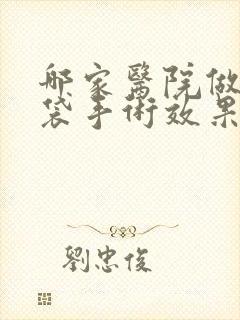 哪家醫院做
袋手術效果
劉忠俊